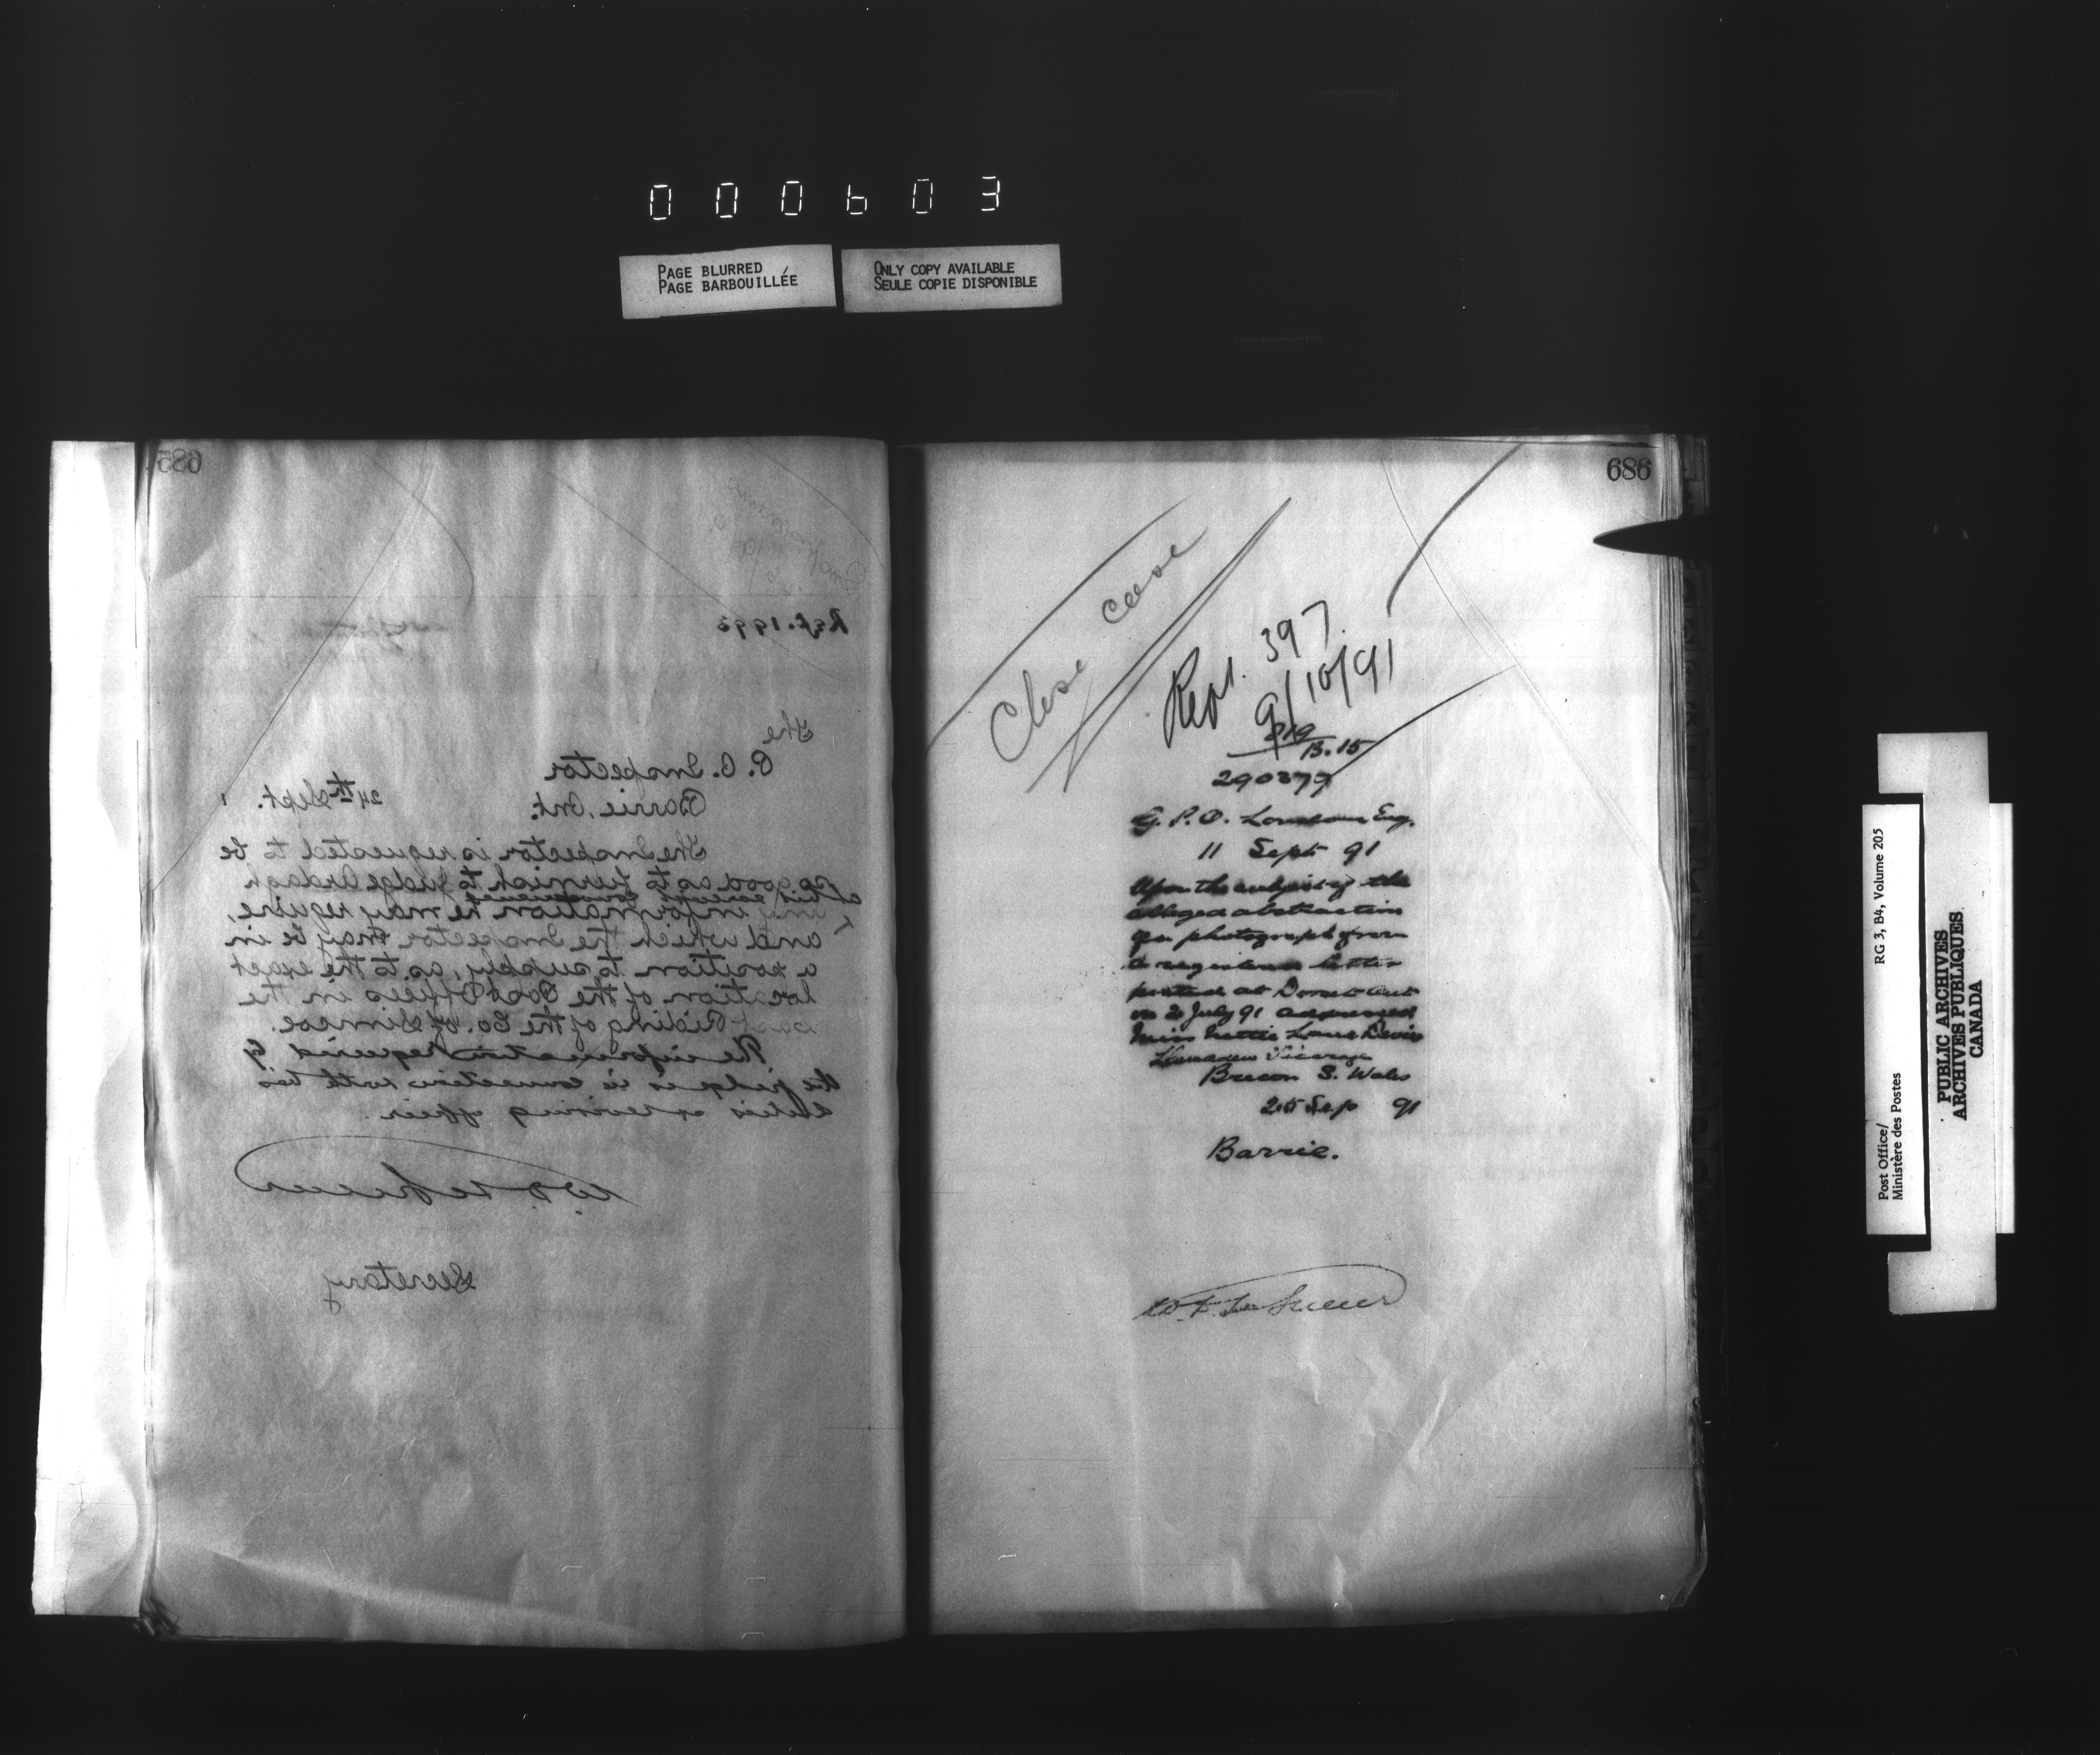 000603
PAGE BLURRED
PAGE BARBOUILLÉE
ONLY COPY AVAILABLE
SEULE COPIE DISPONIBLE
685
Ref. 1993
The
P. O. Inspector
Barrie, Ont.
24th Sept.
The Inspector is requested to be
so good as to furnish to Judge Ardagh
at his
any information he may require,
and which the Inspector may be in
a position to supply, as to the exact
location of the Post Offices in the
East Riding of the Co. of Simcoe.
The information required by
the judge is in connection with his
duties as revising officer.
W. D. LeSueur
Secretary
686
Close case
Rept. 397
9/10/91
B.15
290377
G. P. O. London Eng.
11 Sept 91
Upon the subject of the
alleged abstraction
of a photograph from
a registered letter
posted at Dorset Ont
on 2 July 91 addressed
Miss Nettie Davies
Vicarage
Brecon S. Wales
25 Sep 91
Barrie.
W. D. LeSueur
Post Office/
Ministère des Postes
RG 3, B4, Volume 205
PUBLIC ARCHIVES
ARCHIVES PUBLIQUES
CANADA